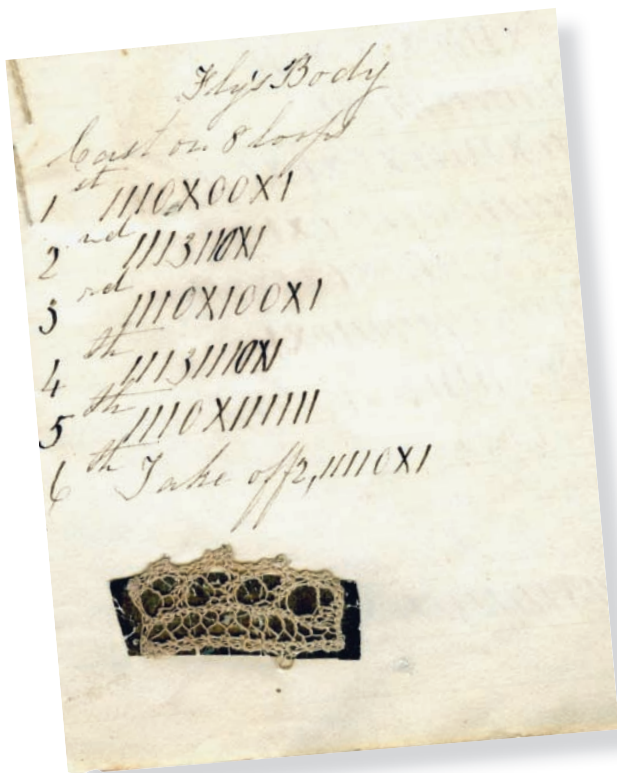 Fly's Body
Cast on 8 loops
1st 1110X00X1
2nd 1113110X1
3rd 1110X100X1
4th 11131110X1
5th 1110X111111
6th Take off 2, 11110X1